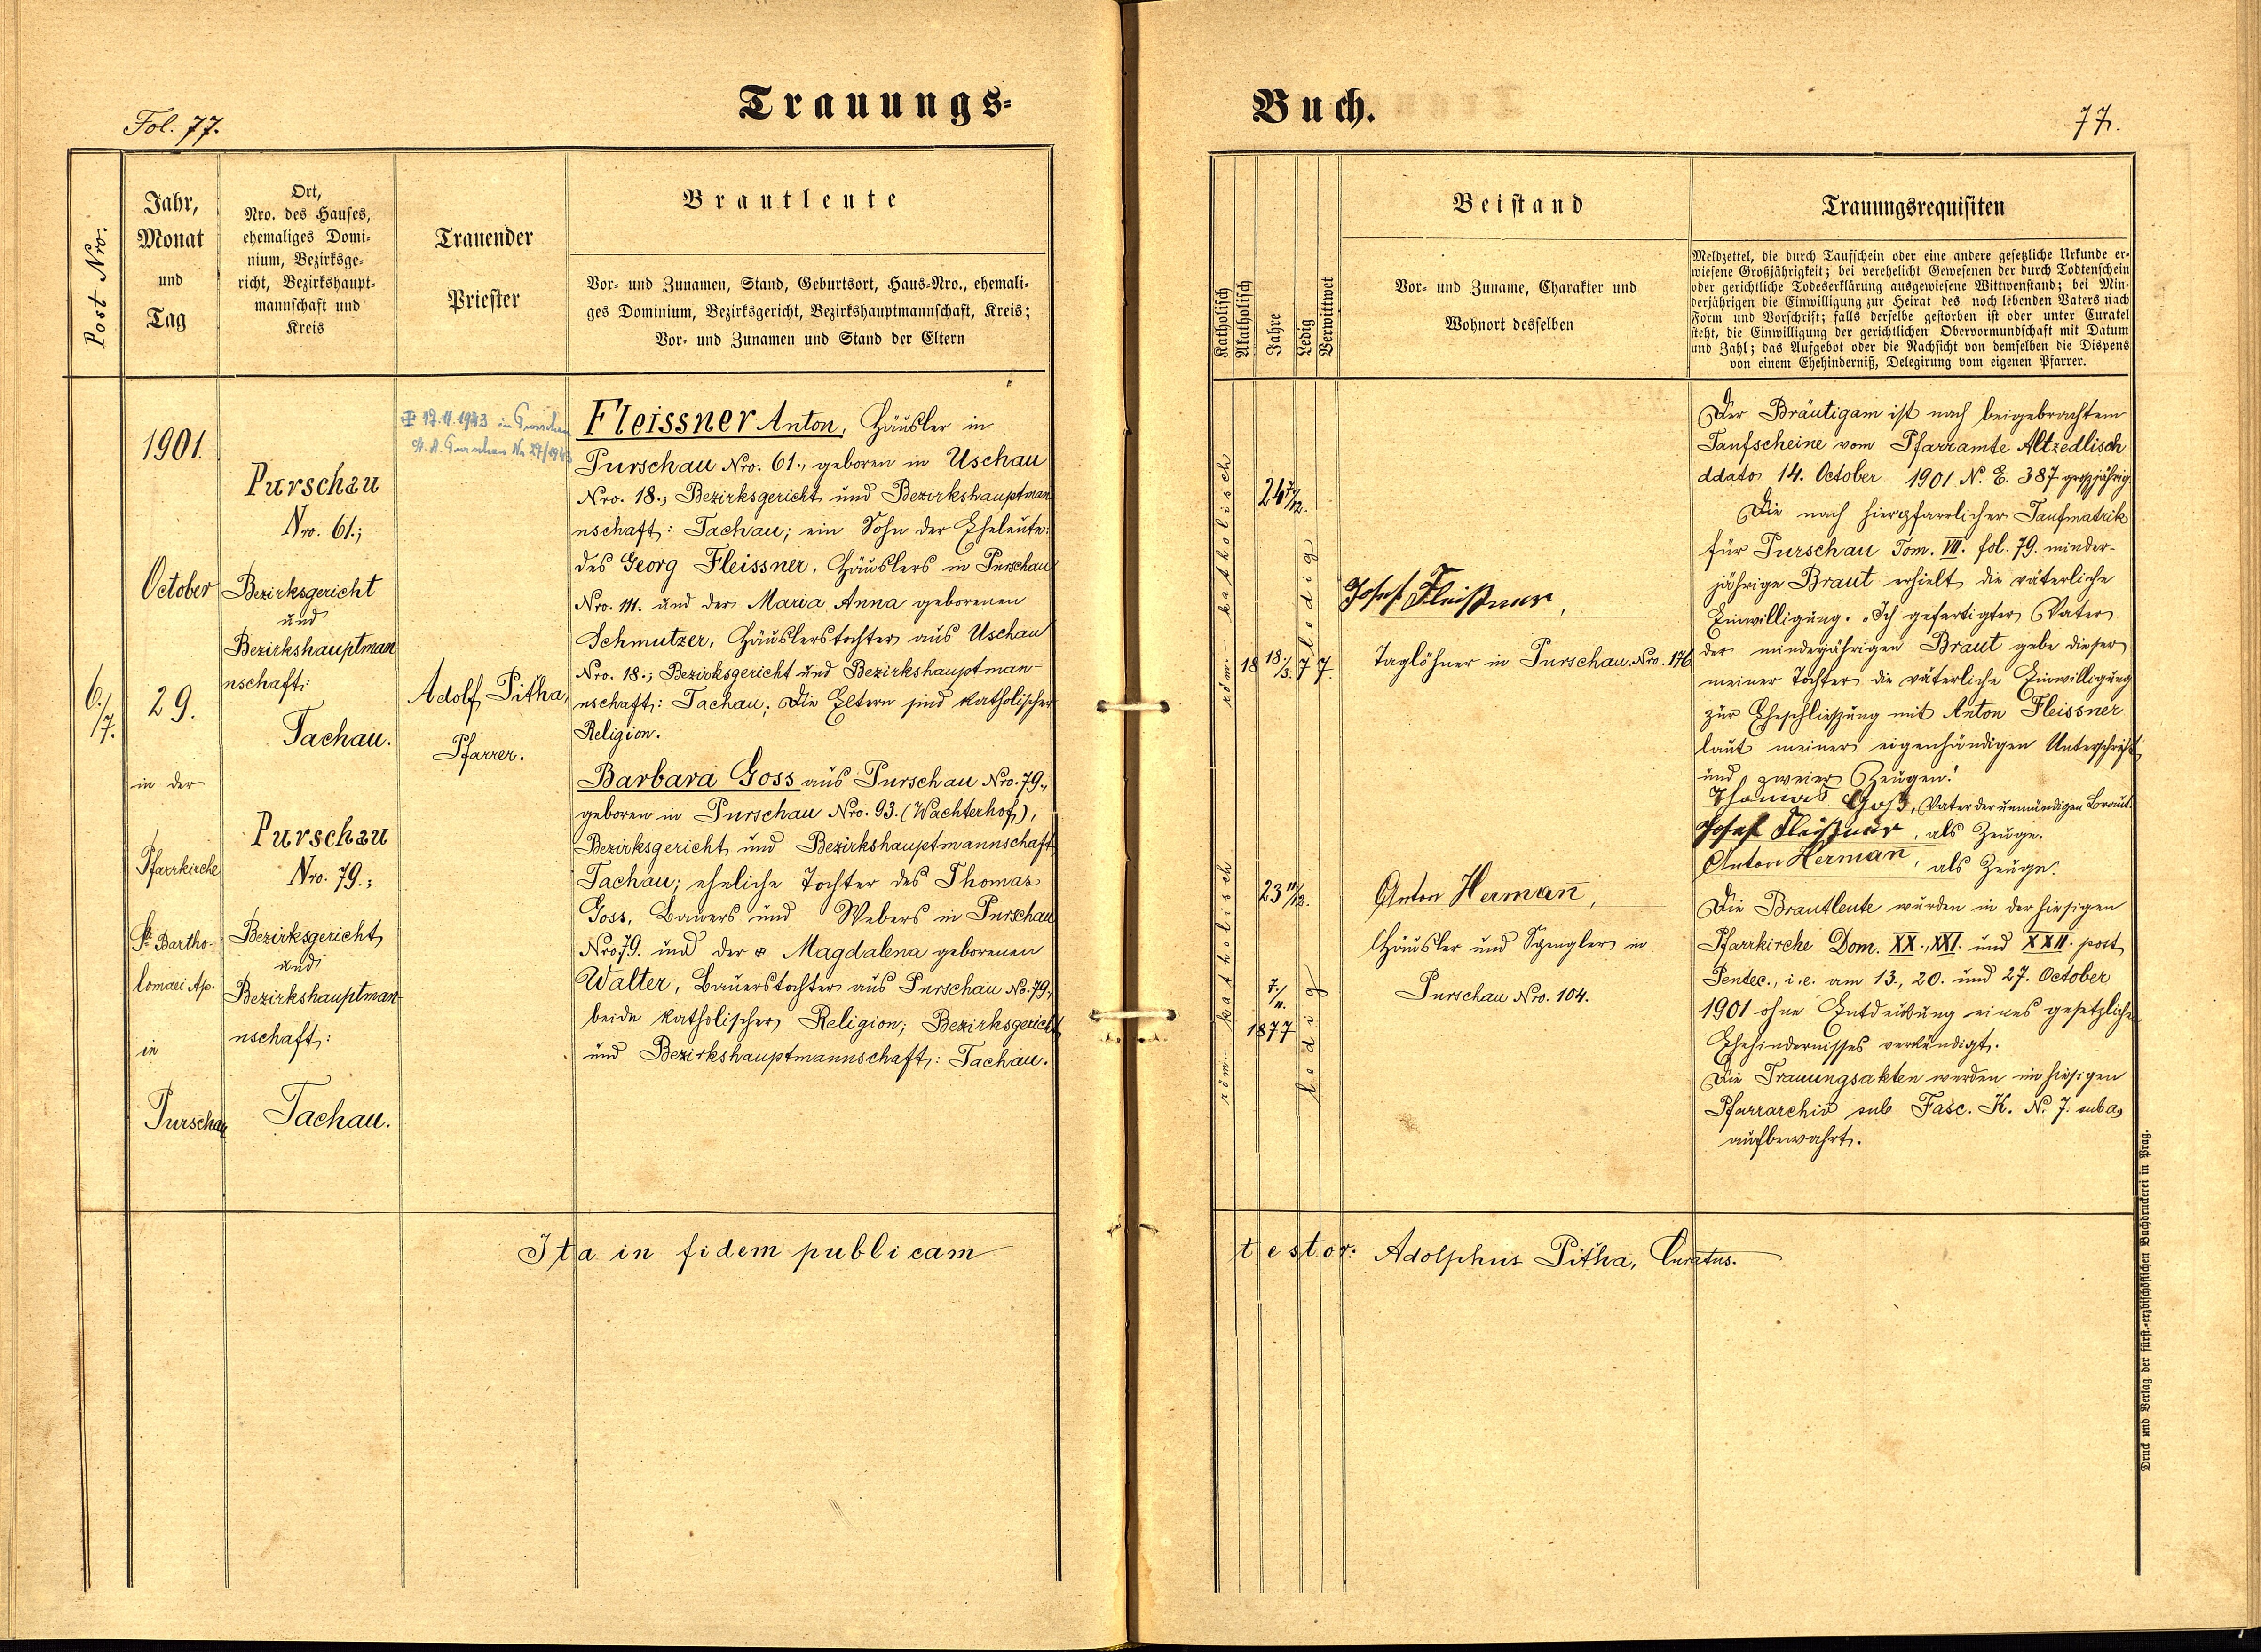 Fol. 77.
Trauungs-
Post Nro.
Jahr,
Monat
und
Tag
Ort,
Nro. des Hauses,
ehemaliges Domi-
nium, Bezirksge-
richt, Bezirkshaupt-
mannschaft und
Kreis
Trauender
Priester
Brautleute
Vor- und Zunamen, Stand, Geburtsort, Haus-Nro., ehemali-
ges Dominium, Bezirksgericht, Bezirkshauptmannschaft, Kreis;
Vor- und Zunamen und Stand der Eltern
6./7.
1901.
October
29.
in der
Pfarrkirche
St. Bartho-
lomaei Ap.
in
Purschau
Purschau
Nro. 61.;
Bezirksgericht
und
Bezirkshauptman-
nschaft:
Tachau.
Purschau
Nro. 79.;
Bezirksgericht
und
Bezirkshauptman-
nschaft:
Tachau.
1943 in Purschau
Nr. 27/1943
Adolf Pitha,
Pfarrer.
Fleissner Anton, Häusler in
Purschau Nro. 61., geboren in Uschau
Nro. 18.; Bezirksgericht und Bezirkshauptman-
nschaft: Tachau; ein Sohn der Eheleute:
des Georg Fleissner, Häuslers in Purschau
Nro. 111. und der Maria Anna geborenen
Schmutzer, Häuslerstochter aus Uschau
Nro. 18.; Bezirksgericht und Bezirkshauptman-
nschaft: Tachau; die Eltern sind katholischer
Religion.
Barbara Goss aus Purschau Nro. 79.,
geboren in Purschau Nro. 93. (Wachterhof),
Bezirksgericht und Bezirkshauptmannschaft
Tachau; eheliche Tochter des Thomas
Goss, Bauers und Webers in Purschau
Nro 79. und der Magdalena geborenen
Walter, Bauerstochter aus Purschau No. 79.,
beide katholischer Religion; Bezirksgericht
und Bezirkshauptmannschaft: Tachau.
Ita in fidem publicam
Buch.
77.
Katholisch
Akatholisch
Jahre
Ledig
Verwittwet
Beistand
Vor- und Zuname, Charakter und
Wohnort desselben
Trauungsrequisiten
Meldzettel, die durch Taufschein oder eine andere gesetzliche Urkunde er-
wiesene Großjährigkeit; bei verehelicht Gewesenen der durch Todtenschein
oder gerichtliche Todeserklärung ausgewiesene Wittwenstand; bei Min-
derjährigen die Einwilligung zur Heirat des noch lebenden Vaters nach
Form und Vorschrift; falls derselbe gestorben ist oder unter Curatel
steht, die Einwilligung der gerichtlichen Obervormundschaft mit Datum
und Zahl; das Aufgebot oder die Nachsicht von demselben die Dispens
von einem Ehehinderniß, Delegirung vom eigenen Pfarrer.
röm.- katholisch
24 7/12.
18 18./3. 77.
ledig
Josef Fleißner,
Taglöhner in Purschau Nro. 176
röm.- katholisch
23 11/12.
7./11.
1877
ledig
Anton Herman̄,
Häusler und Spengler in
Purschau Nro. 104.
Der Bräutigam ist nach beigebrachtem
Taufscheine vom Pfarramte Altzedlisch
ddato 14. October 1901 N. E. 387 großjährig.
Die nach hierpfarrlicher Taufmatrik
für Purschau Tom. VII. fol. 79. minder-
jährige Braut erhielt die väterliche
Einwilligung. „Ich gefertigter Vater
der minderjährigen Braut gebe dieser
meiner Tochter die väterliche Einwilligung
zur Eheschließung mit Anton Fleissner
laut meiner eigenhändigen Unterschrift
und zweier Zeugen."
Thomas Goß, Vater der unmündigen Braut.
Josef Fleißner, als Zeuge.
Anton Herman̄, als Zeuge.
Die Brautleute wurden in der hiesigen
Pfarrkirche Dom. XX., XXI. und XXII. post
Pentec., i. e. am 13., 20. und 27. October
1901 ohne Entdeckung eines gesetzlichen
Ehehindernisses verkündigt.
Die Trauungsakten werden im hiesigen
Pfarrarchiv sub Fasc. K. N. 7. sub a,
aufbewahrt.
testor: Adolphus Pitha, Curatus.
Druck und Verlag der fürst.-erzbischöflichen Buchdruckerei in Prag.